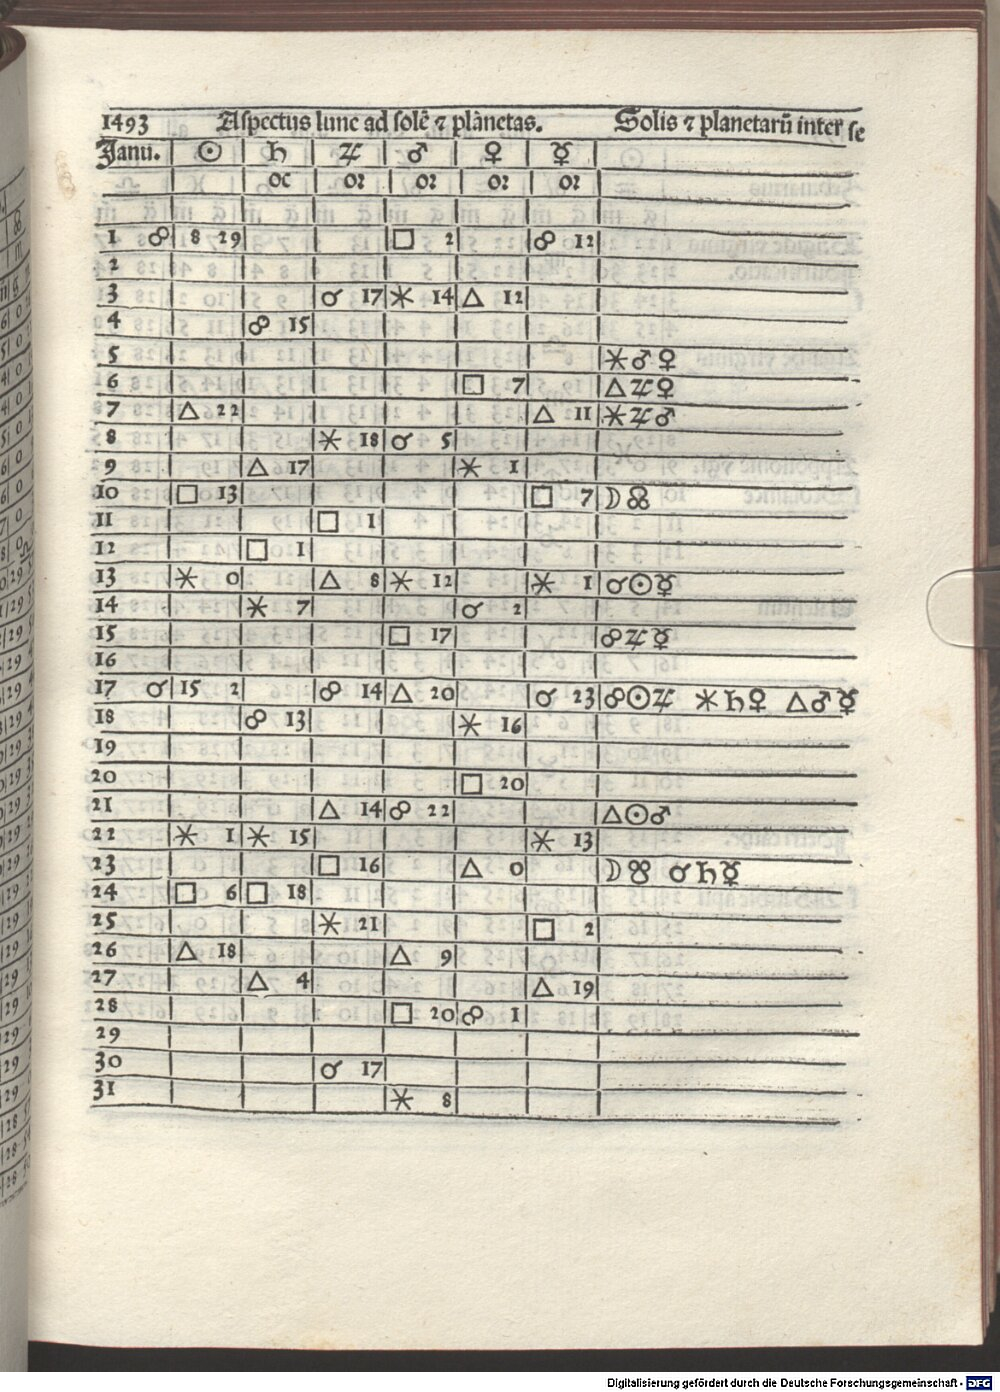 1493 Aspectus lune ad solē ⁊ plānetas. Solis ⁊ planetarū inter se
Janu. ☉ ♄ ♃ ♂ ♀ ☿
oc oꝛ oꝛ oꝛ oꝛ
1 ☍ 8 29 □ 2 ☍ 12
2
3 ☌ 17 ⚹ 14 △ 12
4 ☍ 15
5 ⚹♂♀
6 □ 7 △♃♀
7 △ 22 △ 11 ⚹♃♂
8 ⚹ 18 ☌ 5
9 △ 17 ⚹ 1
10 □ 13 □ 7 ☽☊
11 □ 1
12 □ 1
13 ⚹ 0 △ 8 ⚹ 12 ⚹ 1 ☌☉☿
14 ⚹ 7 ☌ 2
15 □ 17 ☍♃☿
16
17 ☌ 15 2 ☍ 14 △ 20 ☌ 23 ☍☉♃ ⚹♄♀ △♂☿
18 ☍ 13 ⚹ 16
19
20 □ 20
21 △ 14 ☍ 22 △☉♂
22 ⚹ 1 ⚹ 15 ⚹ 13
23 □ 16 △ 0 ☽☋ ☌♄☿
24 □ 6 □ 18
25 ⚹ 21 □ 2
26 △ 18 △ 9
27 △ 4 △ 19
28 □ 20 ☍ 1
29
30 ☌ 17
31 ⚹ 8
Digitalisierung gefördert durch die Deutsche Forschungsgemeinschaft - DFG